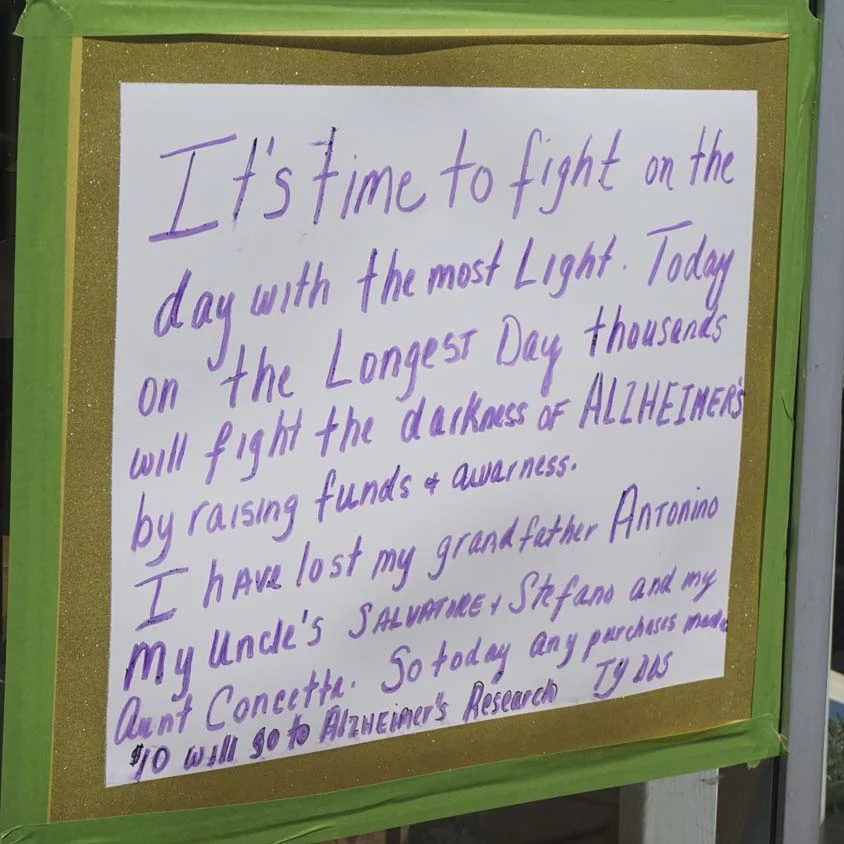 It's time to fight on the
day with the most Light. Today
on the Longest Day thousands
will fight the darkness of ALZHEIMER'S
by raising funds & awarness.
I have lost my grandfather Antonino
My Uncle's SALVATORE & Stefano and my
Aunt Concetta. So today any purchases made
$10 will go to Alzheimer's Research TY DDS